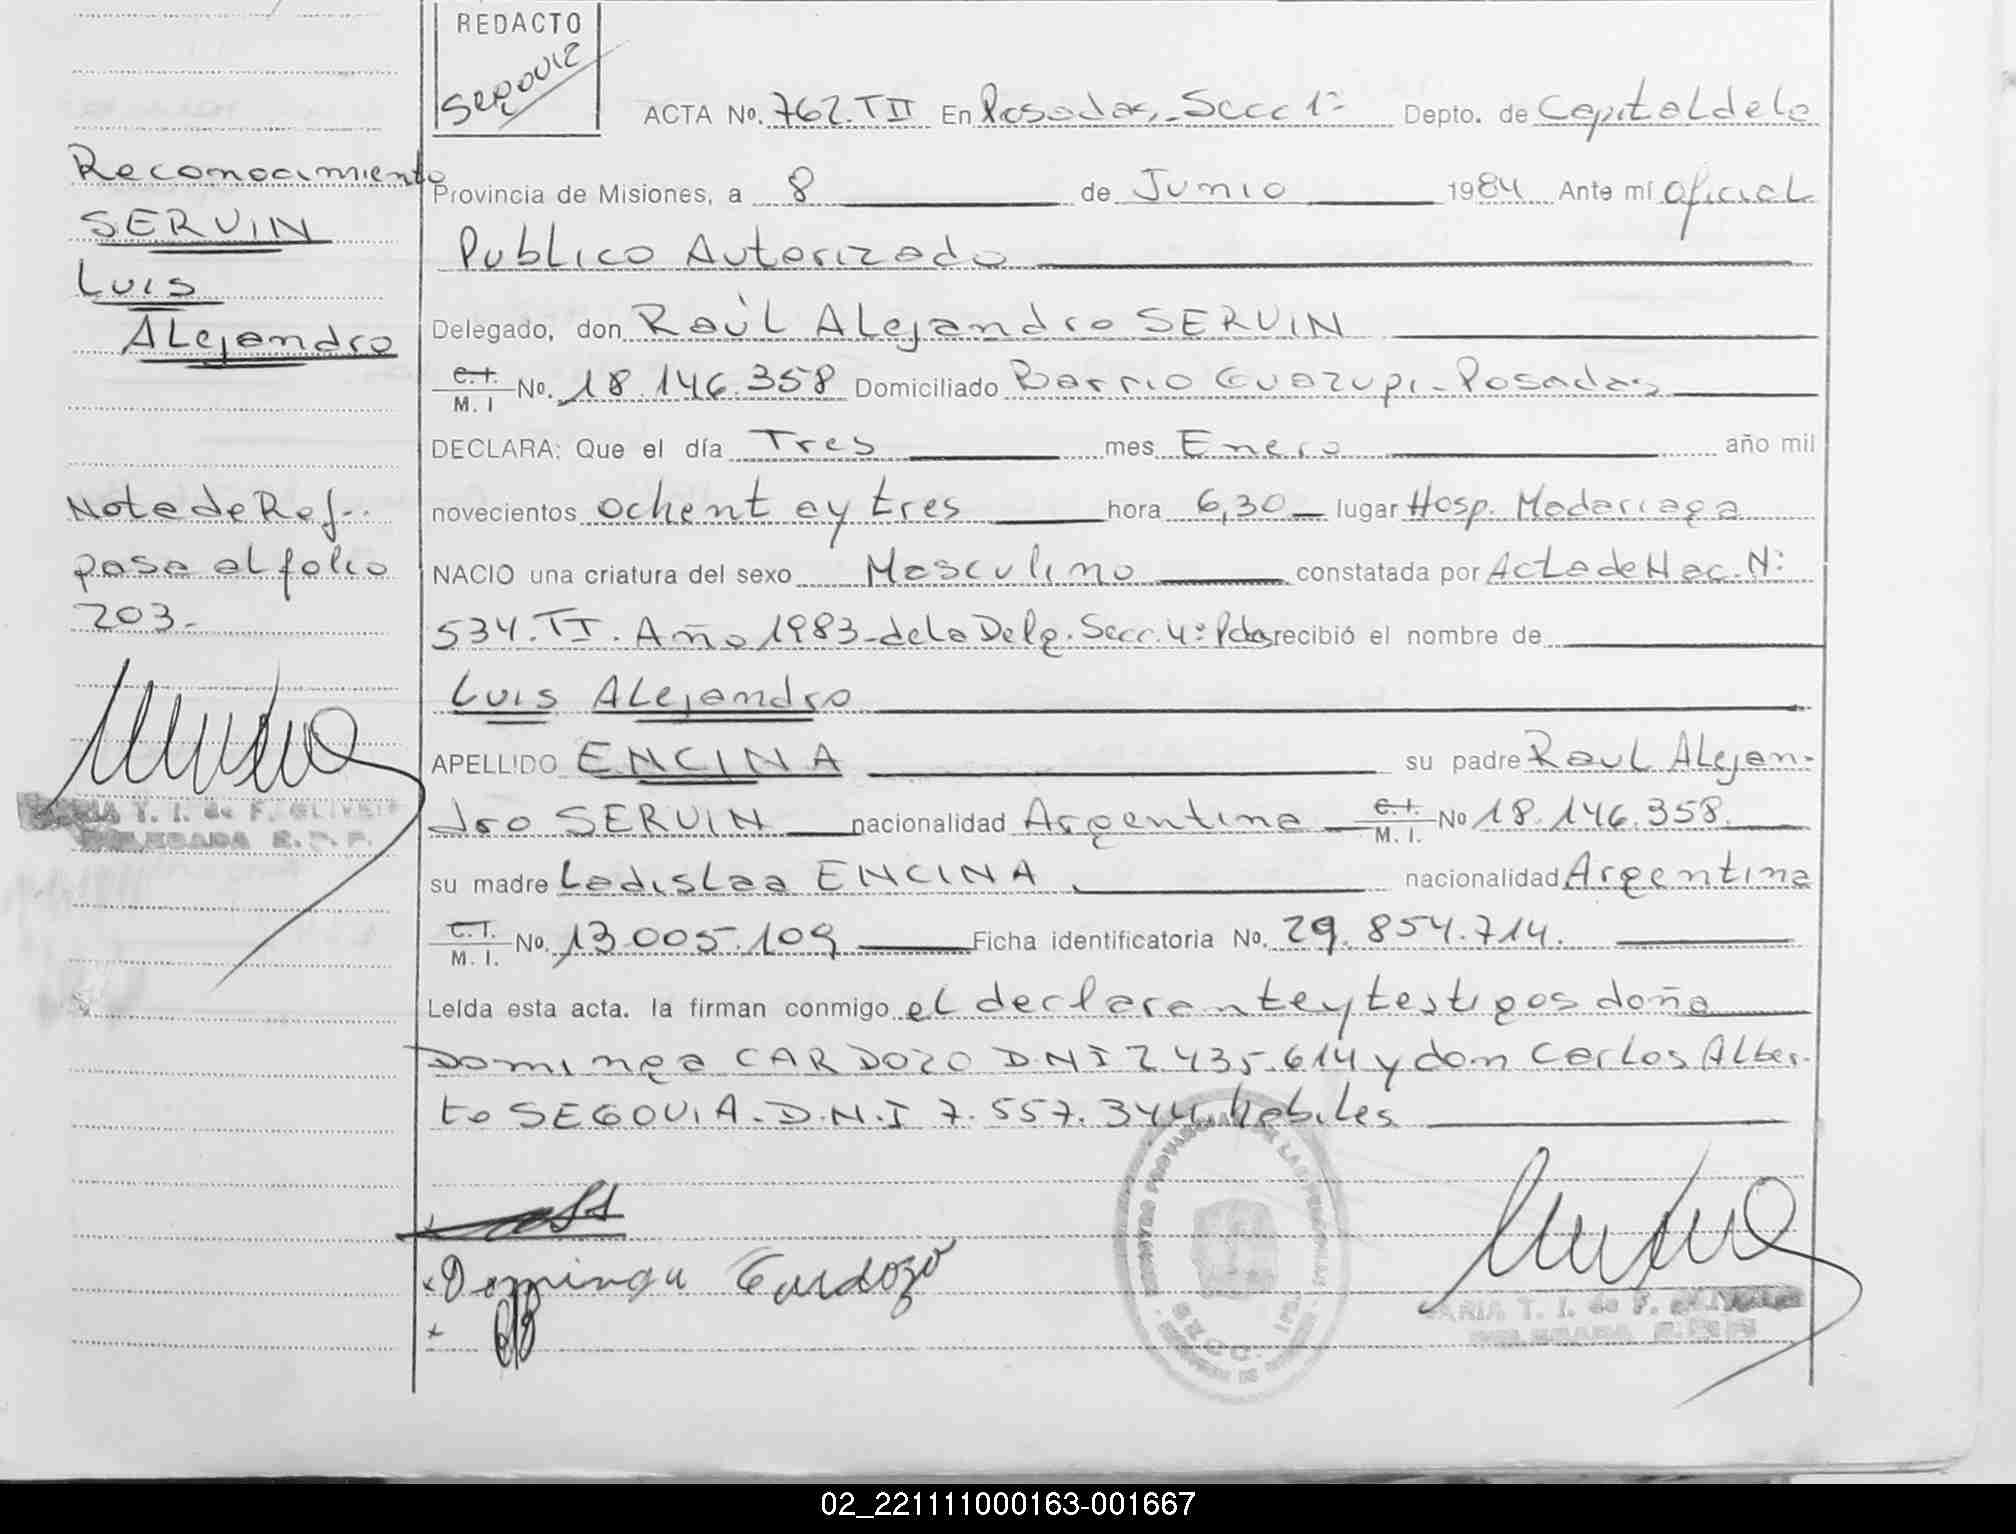 REDACTO
Segovia
ACTA No. 762.TII En Posadas, Secc 1ª Depto. de Capital de la
Reconocimiento
SERVIN
Luis
Alejandro
Provincia de Misiones, a 8 de Junio 1984 Ante mí oficial
Publico Autorizado
Delegado, don Raúl Alejandro SERVIN
C.I.
M. I No. 18.146.358 Domiciliado Barrio Guazupi - Posadas
DECLARA: Que el día Tres mes Enero año mil
novecientos ochenta y tres hora 6,30 lugar Hosp. Madariaga
NACIO una criatura del sexo Masculino constatada por Acta de Nac. Nº
534.TI. Año 1983 - de la Delg. Secc. 4ª Pdas recibió el nombre de
Luis Alejandro
APELLIDO ENCINA su padre Raul Alejan-
dro SERVIN nacionalidad Argentina C.I.
M. I. No 18.146.358.
su madre Ladislaa ENCINA nacionalidad Argentina
C.I.
M. I. No. 13.005.109 Ficha identificatoria No. 29.854.714.
Leída esta acta. la firman conmigo el declarante y testigos doña
Dominga CARDOZO D.N.I 2.435.614 y don Carlos Alber-
to SEGOVIA. D.N.I 7.557.344 habiles
Nota de Ref..
pasa al folio
203.-
MARIA T. I. de F. OLIVEIRA
DELEGADA R.P.P.
Dominga Cardozo
REGISTRO PROVINCIAL DE LAS PERSONAS
SECC. 1ra.
MARIA T. I. de F.
DELEGADA
02_221111000163-001667